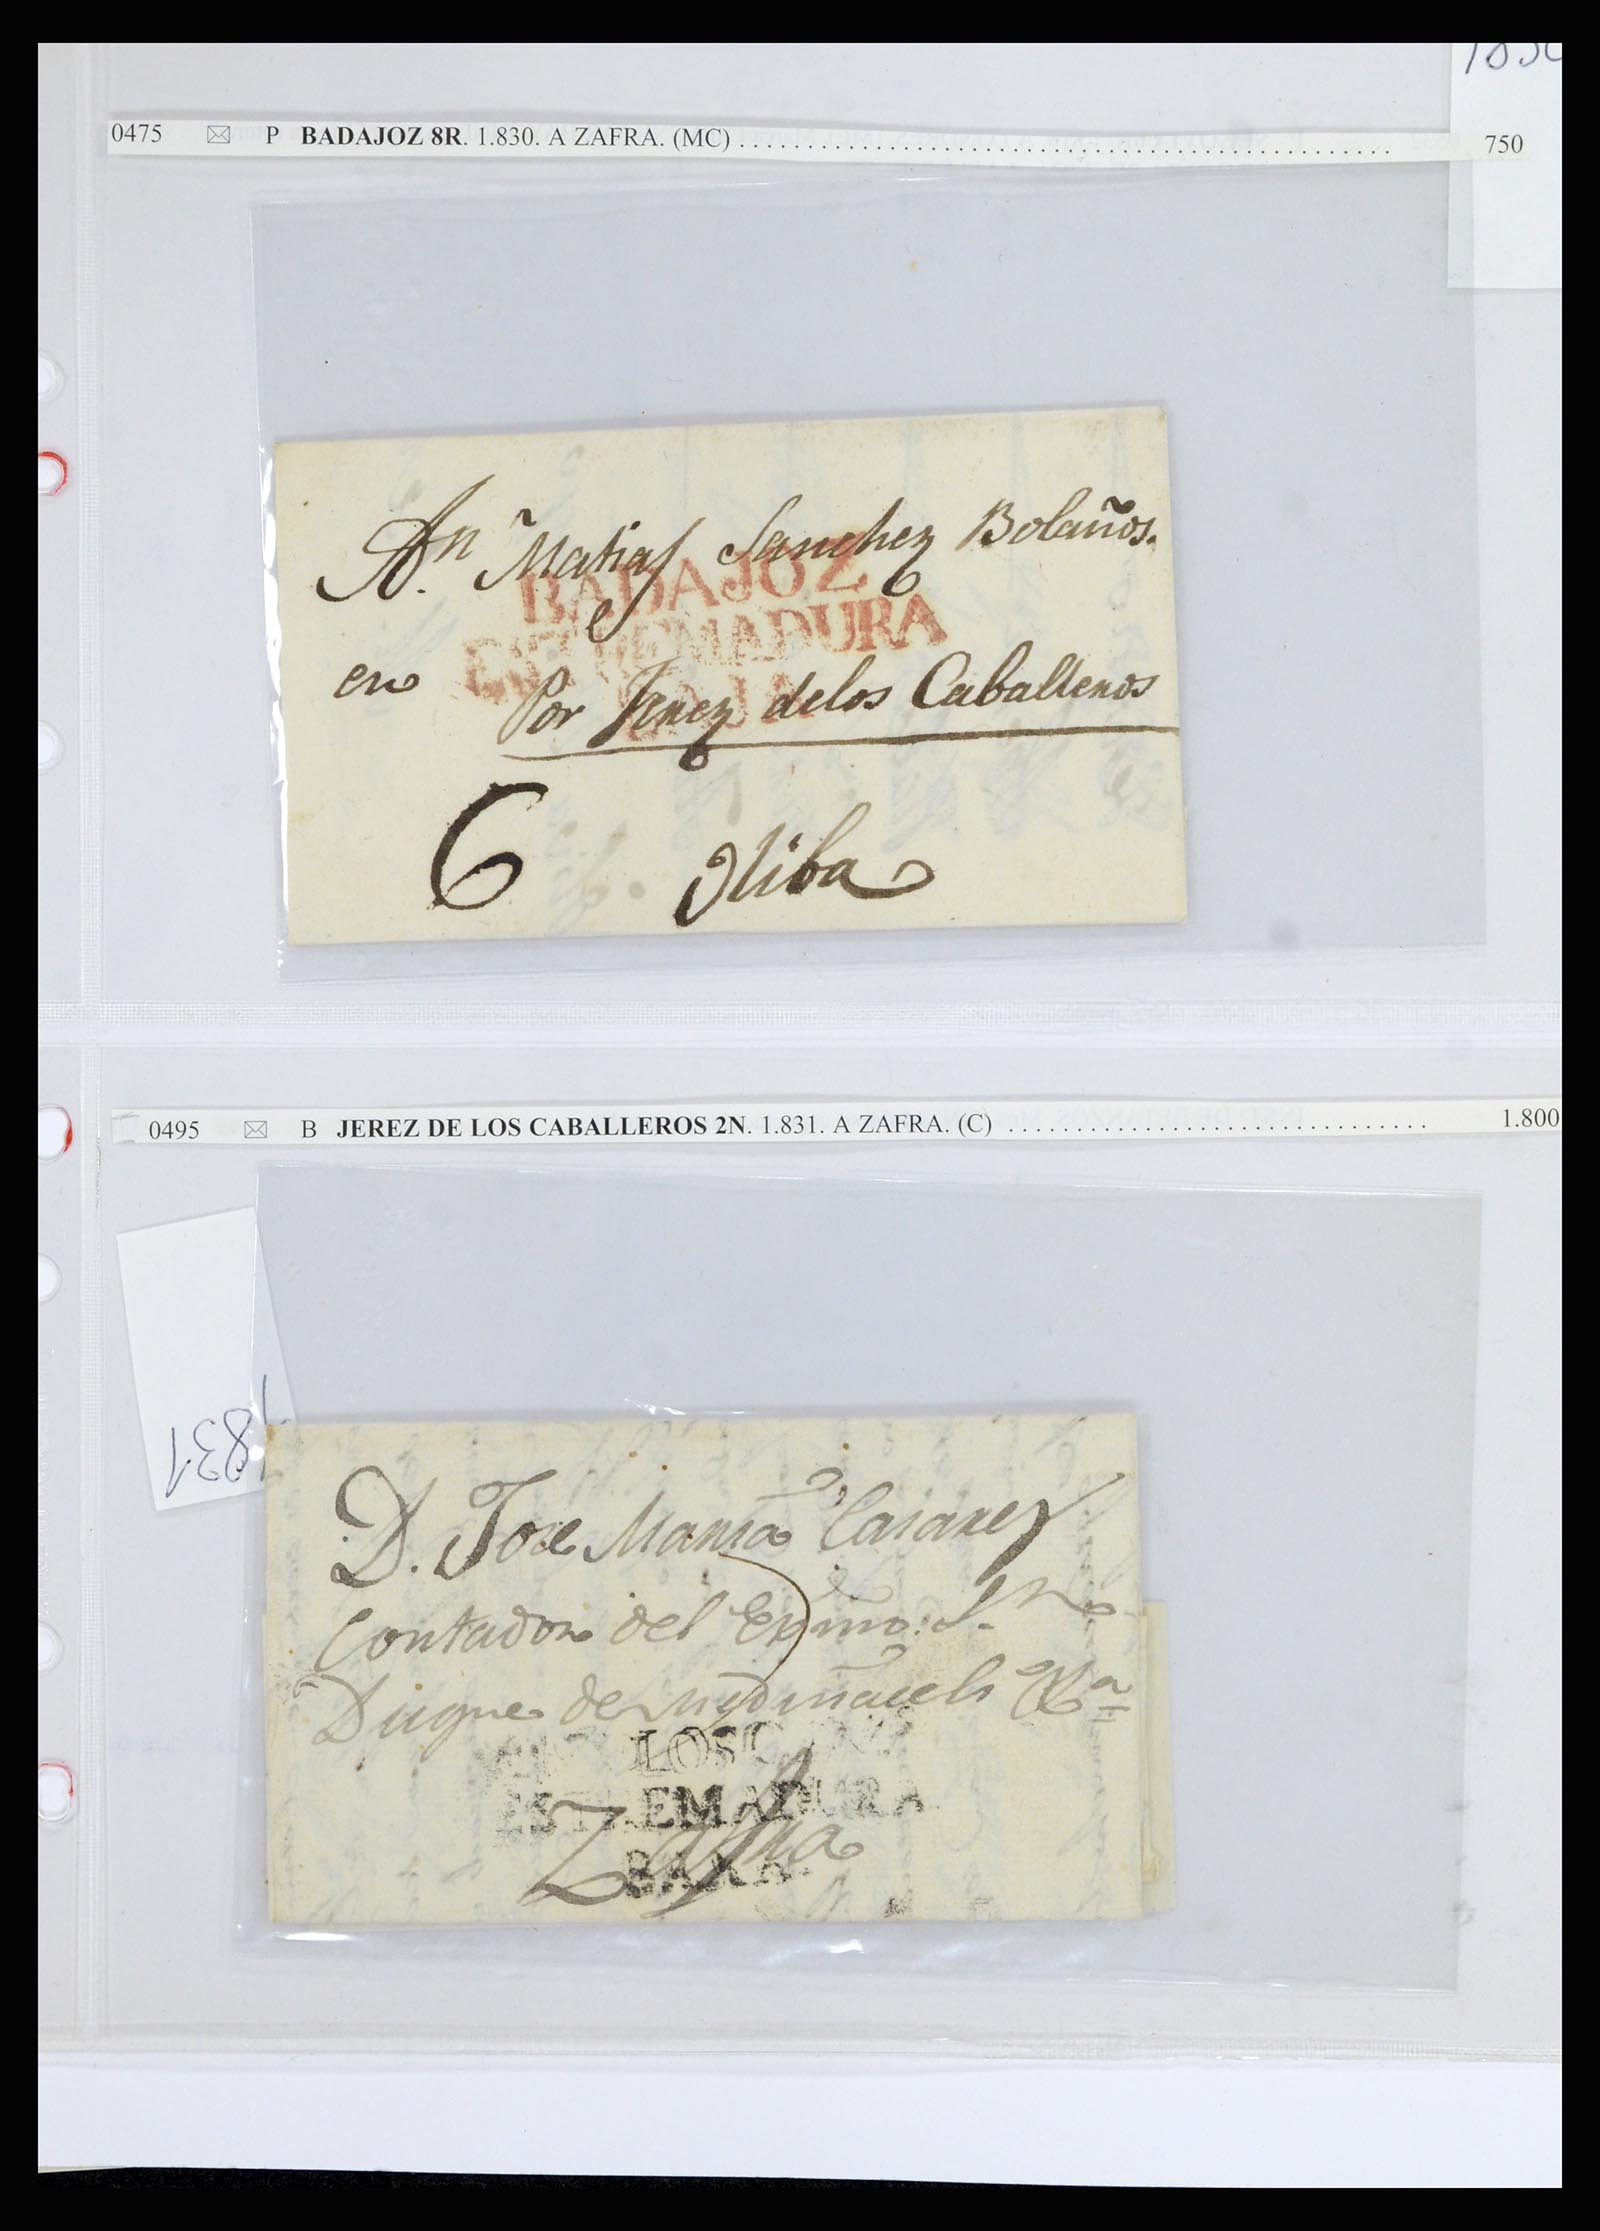 0475 ✉ P BADAJOZ 8R. 1.830. A ZAFRA. (MC) 750
A. Dn Matias Sanchez Bolaños.
BADAJOZ
ESTREMADURA
BAJA
en Por Xerez delos Caballeros
6 Oliba
0495 ✉ B JEREZ DE LOS CABALLEROS 2N. 1.831. A ZAFRA. (C) 1.800
1831
D. Jose Maria
Contador del Exmo. Sr.
Duque de Medinaceli
LOS C
ESTREMADURA
Zafra
BAXA.